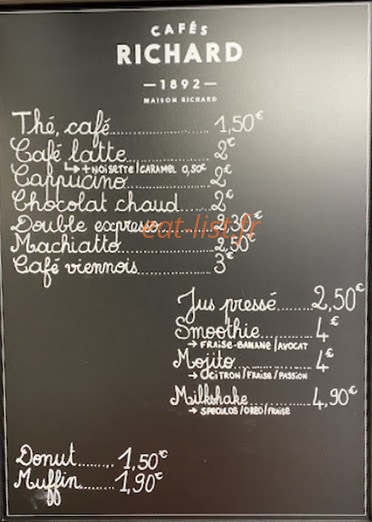 CAFÉS
RICHARD
—1892—
MAISON RICHARD
Thé, café.......... 1,50€
Café latte.......... 2€
↳ + NOISETTE/CARAMEL 0,50€
Cappucino.......... 2€
Chocolat chaud.......... 2€
Double expresso.......... 2,50€
Machiatto.......... 2,50€
Café viennois.......... 3€
eat-list.fr
Jus pressé........ 2,50€
Smoothie........ 4€
→ FRAISE-BANANE/AVOCAT
Mojito........ 4€
→ CITRON/FRAISE/PASSION
Milkshake........ 4,90€
→ SPECULOS/OREO/FRAISE
Donut....... 1,50€
Muffin....... 1,90€